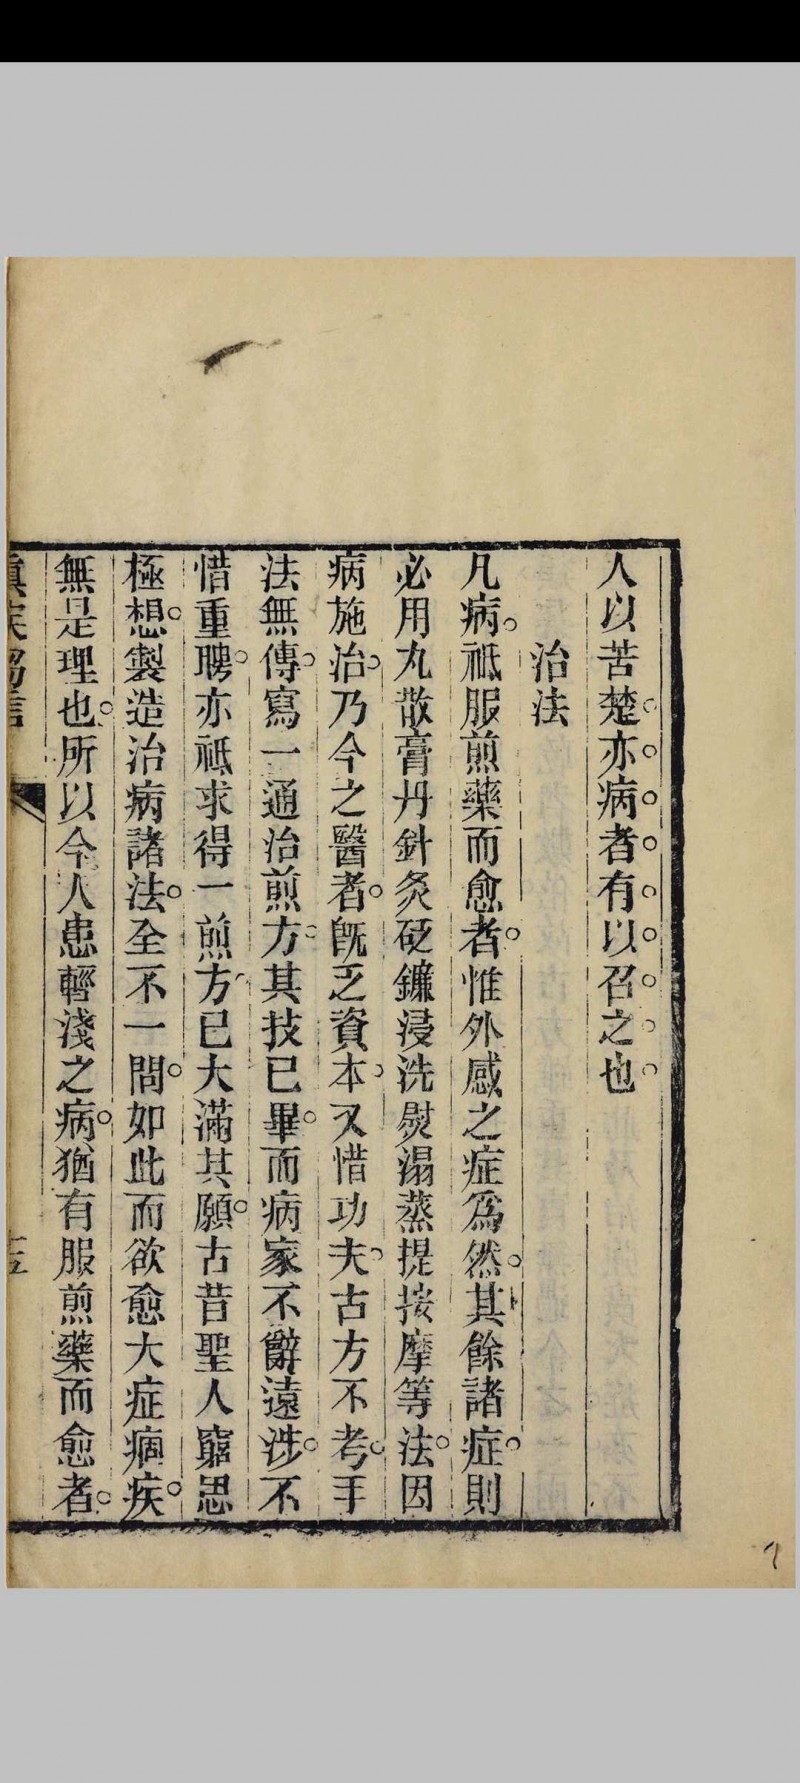 人以苦楚亦病者有以召之也
治法
凡病祗服煎藥而愈者惟外感之症爲然其餘諸症則
必用丸散膏丹針灸砭鐮浸洗熨溻蒸提按摩等法因
病施治乃今之醫者既乏資本又惜功夫古方不考手
法無傳寫一通治煎方其技已畢而病家不辭遠涉不
惜重聘亦祗求得一煎方已大滿其願古昔聖人窮思
極想製造治病諸法全不一問如此而欲愈大症痼疾
無是理也所以今人患輕淺之病猶有服煎藥而愈者
十五